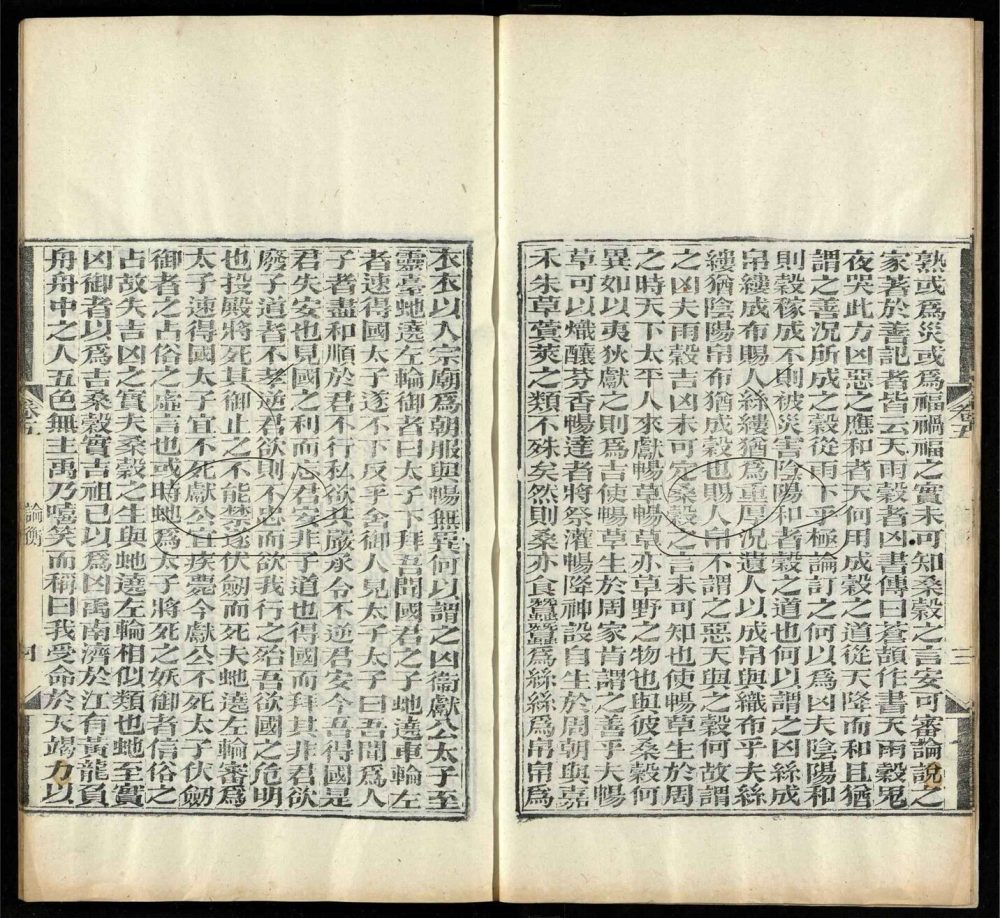 熟或爲災或爲福禍福之實未可知桑穀之言安可審論說之
家著於善記者皆云天雨穀者凶書傳曰蒼頡作書天雨穀鬼
夜哭此方凶惡之應和者天何用成穀之道從天降而和且猶
謂之善況所成之穀從雨下乎極論訂之何以爲凶夫陰陽和
則穀稼成不則被災害陰陽和者穀之道也何以謂之凶絲成
帛縷成布賜人絲縷猶爲重厚況遺人以成帛與織布乎夫絲
縷猶陰陽帛布猶成穀也賜人帛不謂之惡天與之穀何故謂
之凶夫雨穀吉凶未可定桑穀之言未可知也使暢草生於周
之時天下太平人來獻暢草暢草亦草野之物也與彼桑穀何
異如以夷狄獻之則爲吉使暢草生於周家肯謂之善乎夫暢
草可以熾釀芬香暢達者將祭灌暢降神設自生於周朝與嘉
禾朱草蓂莢之類不殊矣然則桑亦食蠶蠶爲絲絲爲帛帛爲
衣衣以入宗廟爲朝服與暢無異何以謂之凶衞獻公太子至
靈臺虵遶左輪御者曰太子下拜吾聞國君之子虵遶車輪左
者速得國太子遂不下反乎舍御人見太子太子曰吾聞爲人
子者盡和順於君不行私欲共嚴承令不逆君安今吾得國是
君失安也見國之利而忘君安非子道也得國而拜其非君欲
廢子道者不孝逆君欲則不忠而欲我行之殆吾欲國之危明
也投殿將死其御止之不能禁遂伏劒而死夫虵遶左輪審爲
太子速得國太子宜不死獻公宜疾薨今獻公不死太子伏劒
御者之占俗之虛言也或時虵爲太子將死之妖御者信俗之
占故失吉凶之實夫桑穀之生與虵遶左輪相似類也虵至實
凶御者以爲吉桑穀實吉祖己以爲凶禹南濟於江有黃龍負
舟舟中之人五色無主禹乃嘻笑而稱曰我受命於天竭力以
論衡